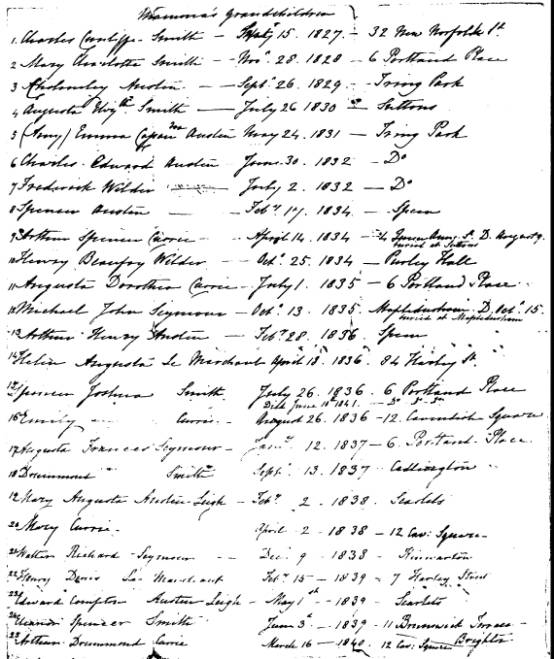 Mamma's Grandchildren
1. Charles Cunliffe Smith - 15. 1827 - 32 New Norfolk St
2 Mary Charlotte Smith - Nov. 28. 1828 - 6 Portland Place
3 Cholmeley Austen - Sept. 26. 1829 - Tring Park
4 Augusta Smith - July 26 1830 - Suttons
5 (Amy) Emma Austen May 24. 1831 - Tring Park
6 Charles Edward Austen June 30. 1832 - Do
7 Frederick Wilder July 2. 1832 - Do
8 Spencer Austen - Feby 17. 1834. - Speen
9 Arthur Spencer Currie - April 14. 1834 - 4 Queen Anne St. D. August 9.
buried at Suttons
10 Henry Beaufoy Wilder - Oct. 25. 1834 - Purley Hall
11 Augusta Dorothea Currie - July 1. 1835 - 6 Portland Place
12 Michael John Seymour - Oct. 13. 1835. Mapledurham. D. Oct. 15.
buried at Mapledurham
13 Arthur Henry Austen - Feby 28. 1836 - Speen
14 Helen Augusta Le Marchant April 13. 1836. 84 Harley St.
15 Spencer Joshua Smith. July 26. 1836 - 6 Portland Place
Died June 1841.
16 Emily Currie. August 26. 1836 - 12. Cavendish Square
17 Augusta Frances Seymour - 12. 1837 - 6. Portland Place.
18 Drummond Smith Sept. 13. 1837.
19 Mary Augusta Austen Leigh - Feby 2. 1838. Scarlets
20 Mary Currie. April 2 - 1838 - 12 Cav: Square
21 Walter Richard Seymour - Dec. 9 - 1838 - Kinwarton
22 Henry Denis Le Marchant Feby 15 - 1839 - 7 Harley Street
23 Edward Compton Austen Leigh - May 1st - 1839 - Scarlets
24 Spencer Smith June 3d. - 1839 - 11 Brunswick Terrace
Brighton
25 Arthur Drummond Currie March 16 - 1840. 12 Cav: Square